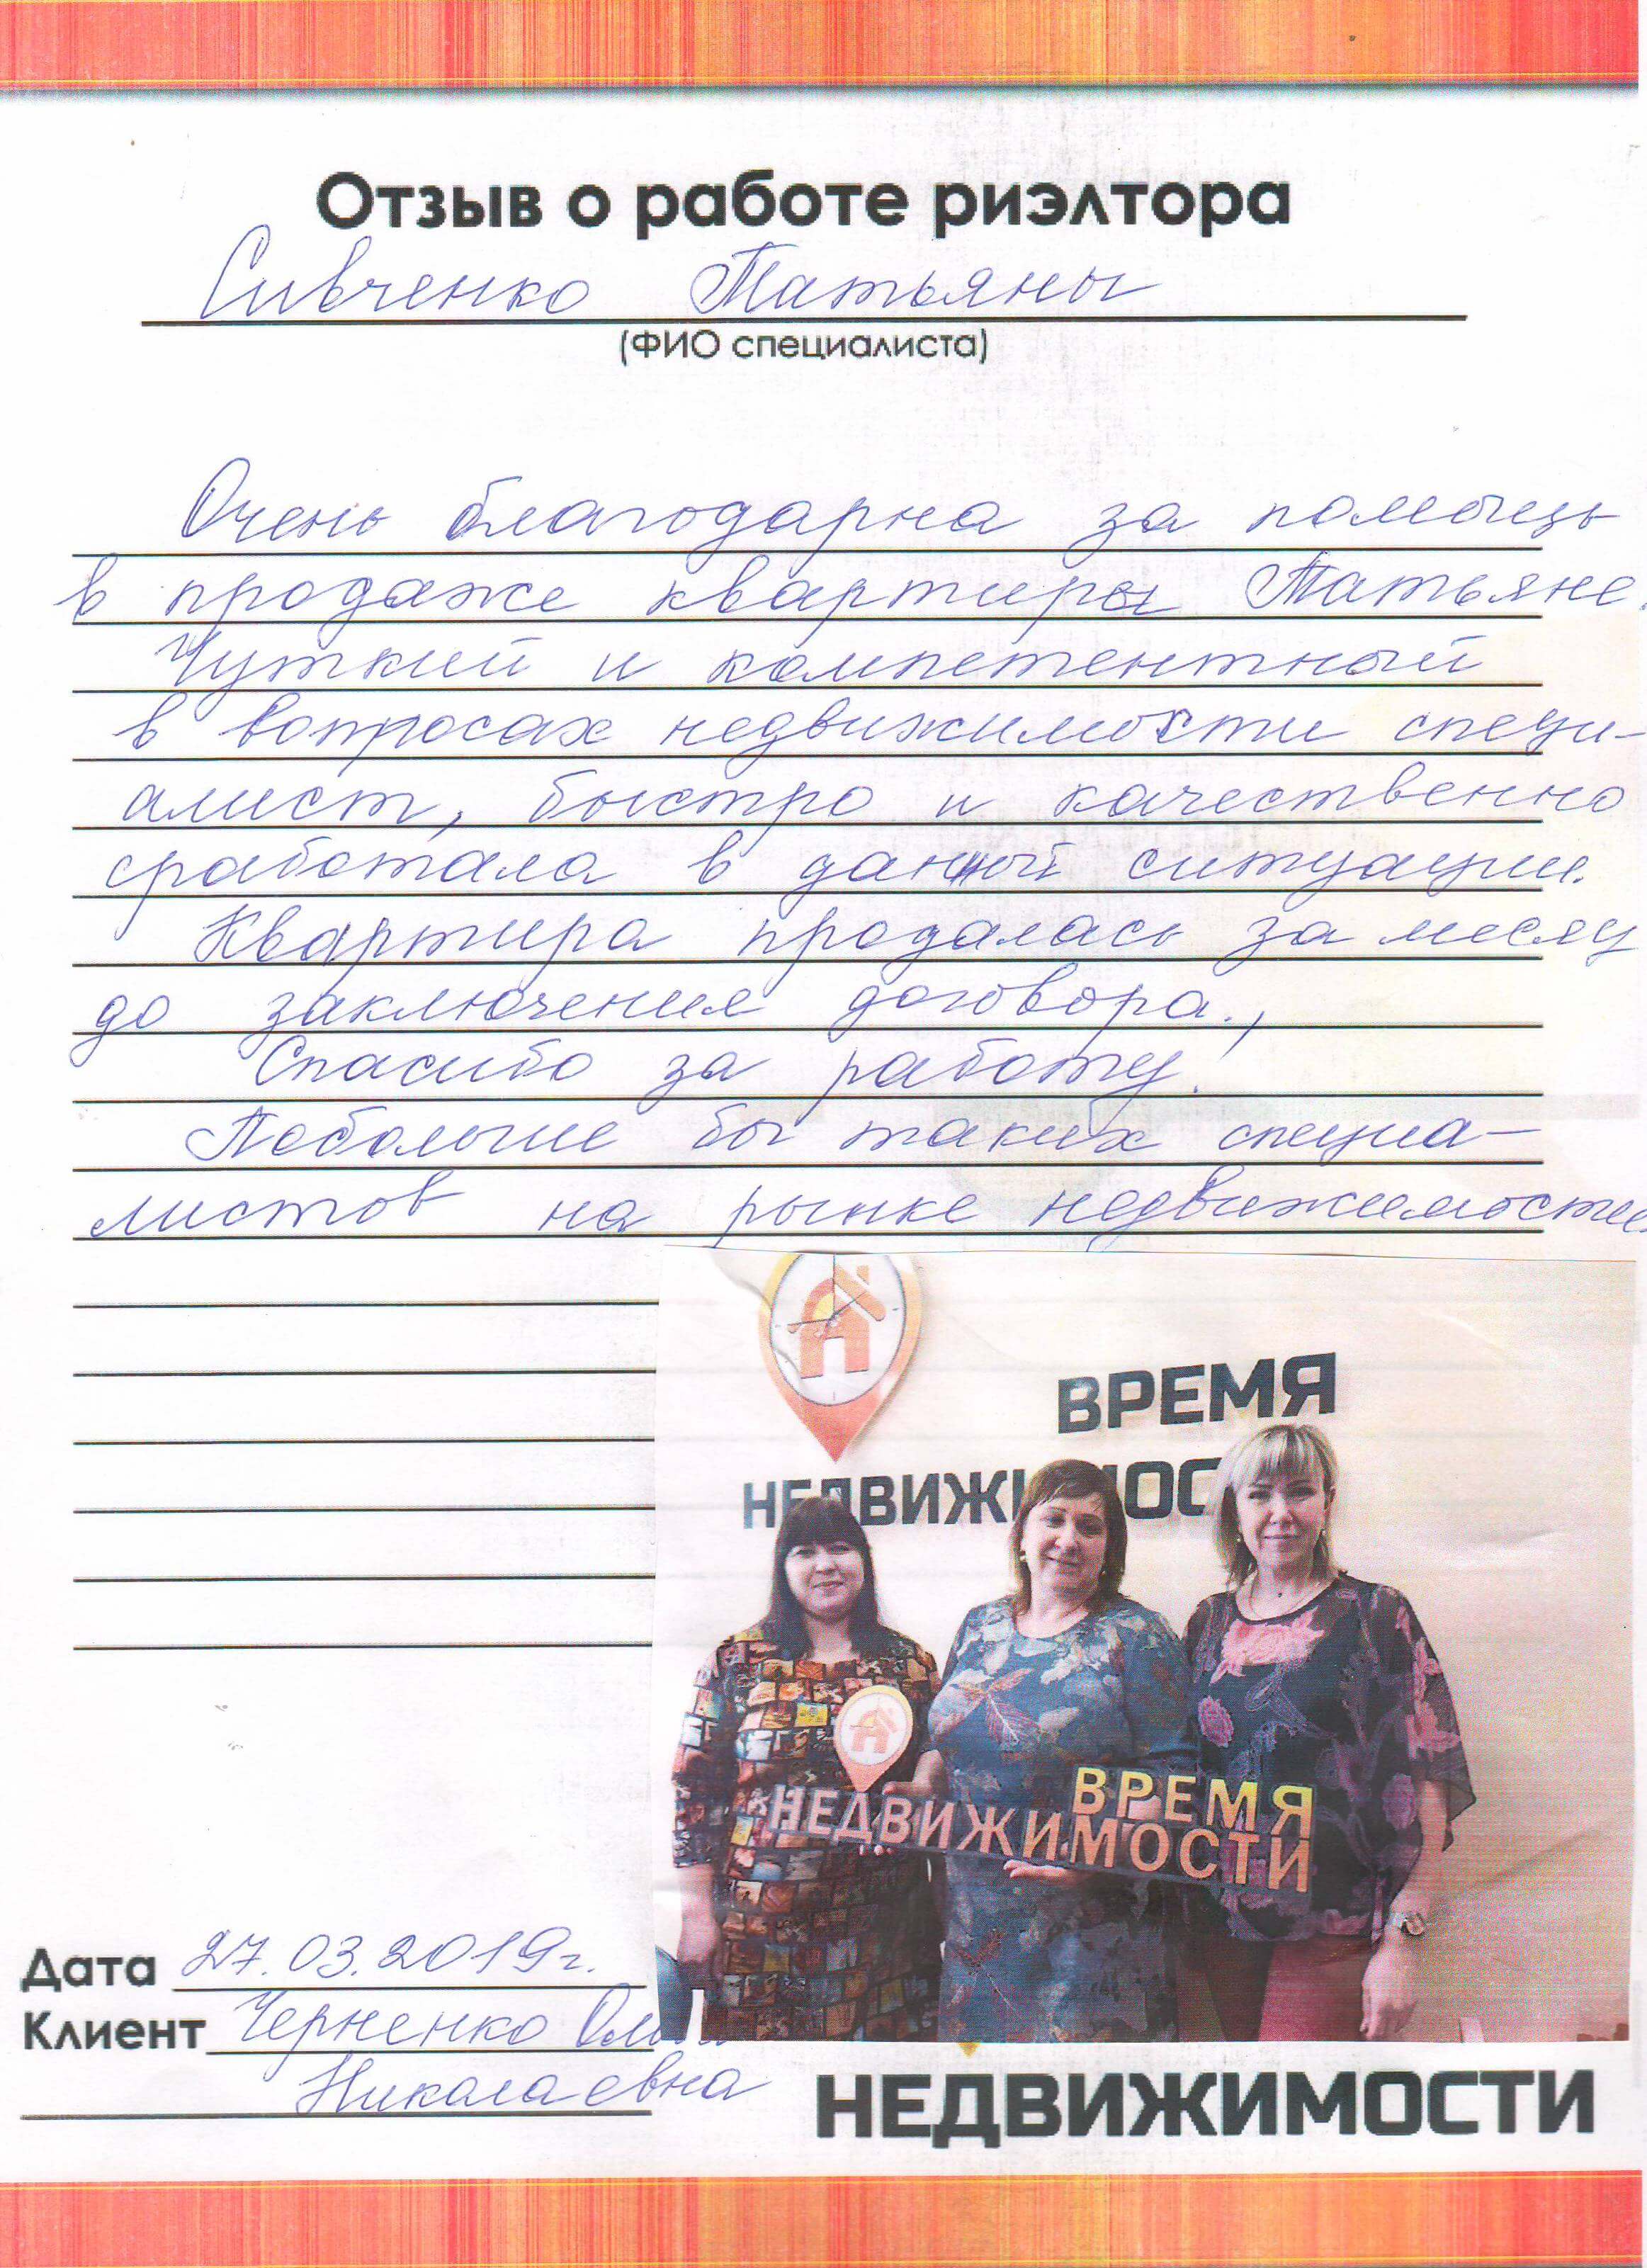 Отзыв о работе риэлтора
Сивченко Татьяны
(ФИО специалиста)
Очень благодарна за помощь
в продаже квартиры Татьяне.
Чуткий и компетентный
в вопросах недвижимости специ-
алист, быстро и качественно
сработала в данной ситуации.
Квартира продалась за месяц
до заключения договора.,
Спасибо за работу.
Побольше бы таких специа-
листов на рынке недвижимости.
ВРЕМЯ
НЕДВИЖИ ОС
ВРЕМЯ
НЕДВИЖИМОСТИ
Дата 27.03.2019г.
Клиент Черненко
Николаевна
НЕДВИЖИМОСТИ